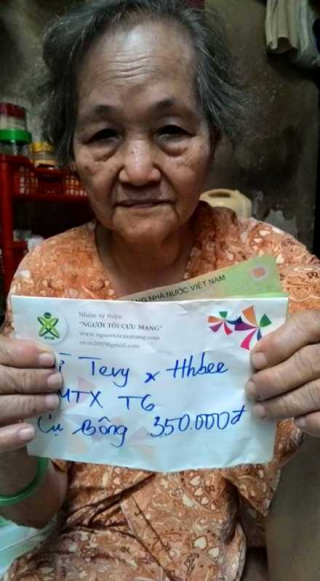 NG NHÀ NƯỚC VIỆT NAM
Nhóm từ thiện
"NGƯỜI TÔI CƯU MANG"
www.nguoitoicuumang.com
Tevy x Hhbee
MTX T6
Cụ Bông 350.000đ